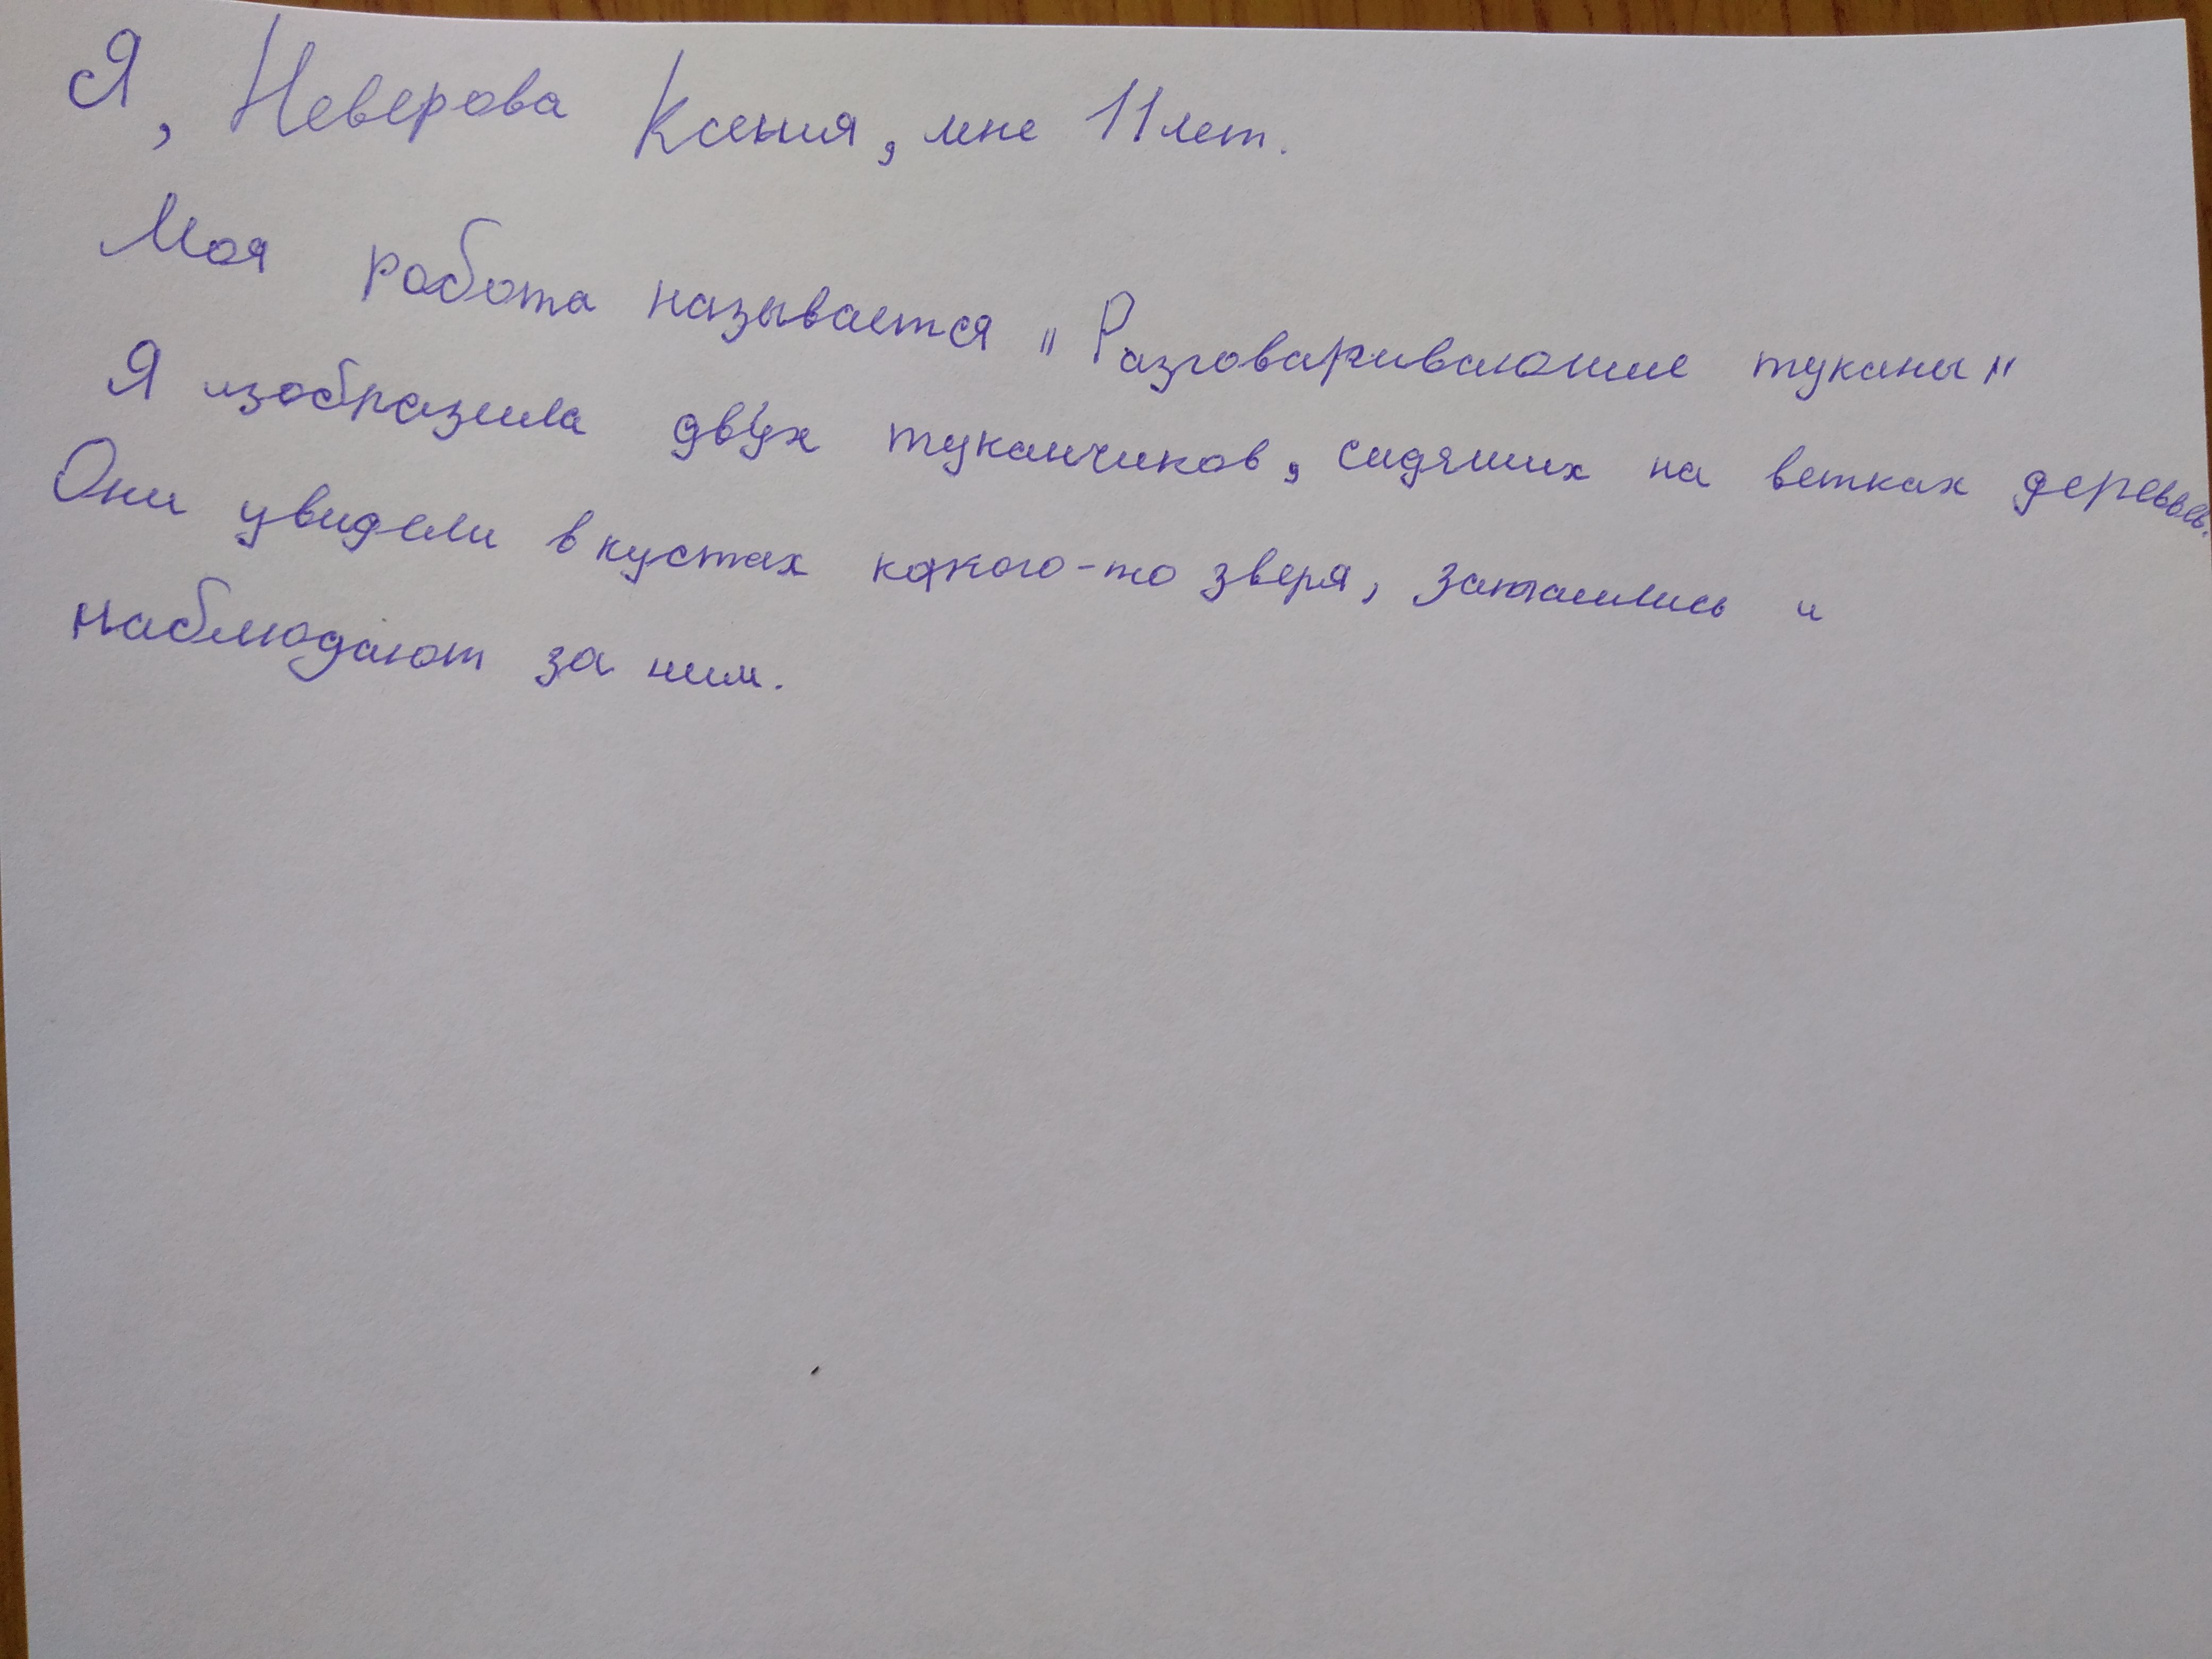 Я, Неверова Ксения, мне 11 лет.
Моя работа называется "Разговаривающие туканы"
Я изобразила двух туканчиков, сидящих на ветках деревьев.
Они увидели в кустах какого-то зверя, затаились и
наблюдают за ним.